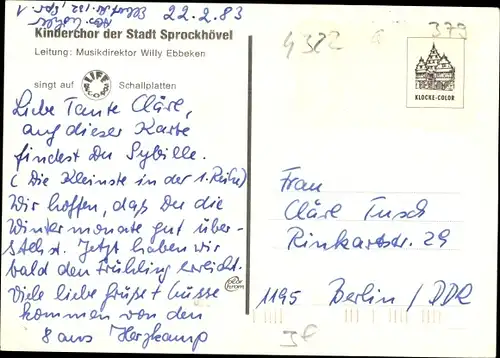 22.2.83
Kinderchor der Stadt Sprockhövel
Leitung: Musikdirektor Willy Ebbeken
singt auf LIFE RECORDS Schallplatten
Liebe Tante Cläre,
auf dieser Karte
findest Du Sybille.
(Die Kleinste in der 1. Reihe)
Wir hoffen, daß Du die
Wintermonate gut über-
stehst. Jetzt haben wir
bald den Frühling erreicht.
Viele liebe Grüße + Küsse
kommen von den
8 aus Herzkamp
4322
379
KLOCKE-COLOR
Frau
Cläre Tusch
Rinkartstr. 29
1195 Berlin / DDR